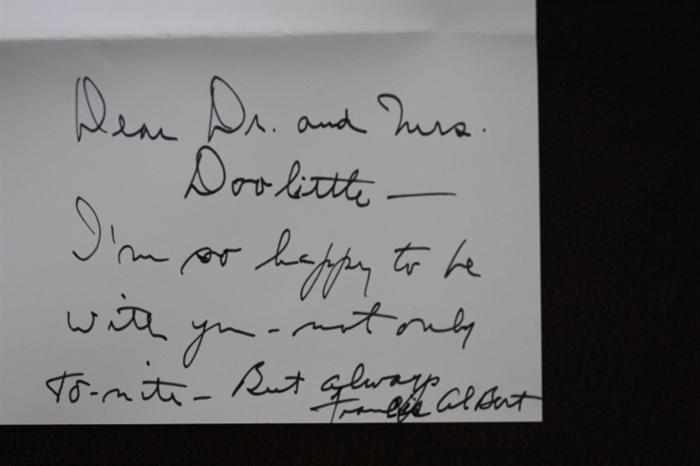 Dear Dr. and Mrs.
Doolittle —
I'm so happy to be
with you - not only
to-nite - But always
Francis Albert